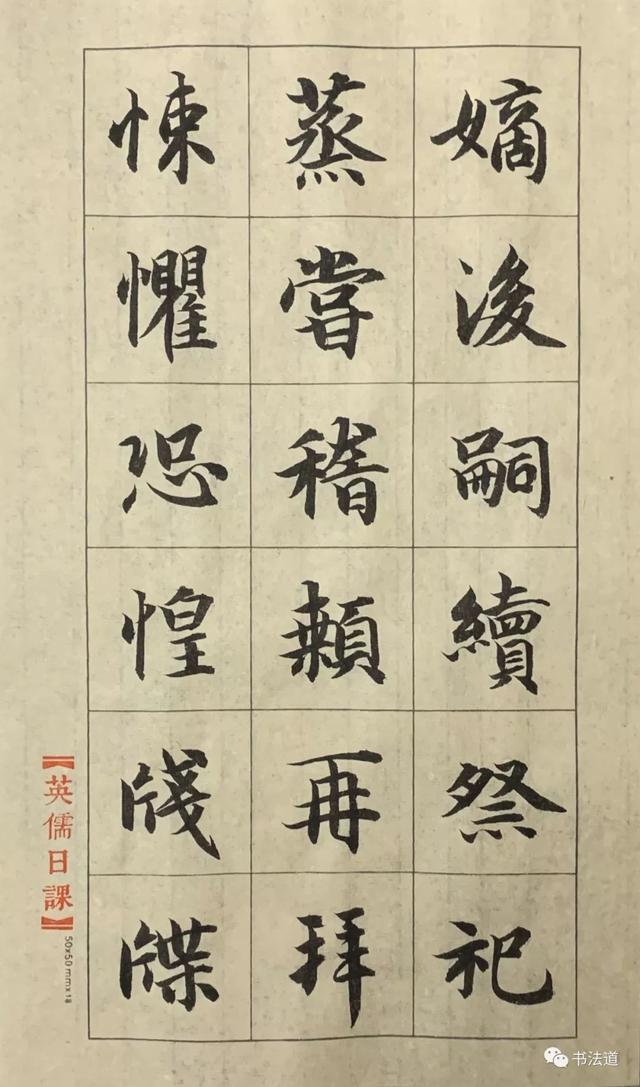 嫡後嗣續祭祀
蒸嘗稽顙再拜
悚懼恐惶牋牒
【英儒日課】
50x50mmx18
书法道